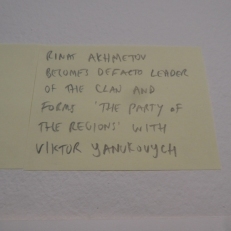 RINAT AKHMETOV
BECOMES DEFACTO LEADER
OF THE CLAN AND
FORMS 'THE PARTY OF
THE REGIONS' WITH
VIKTOR YANUKOVYCH